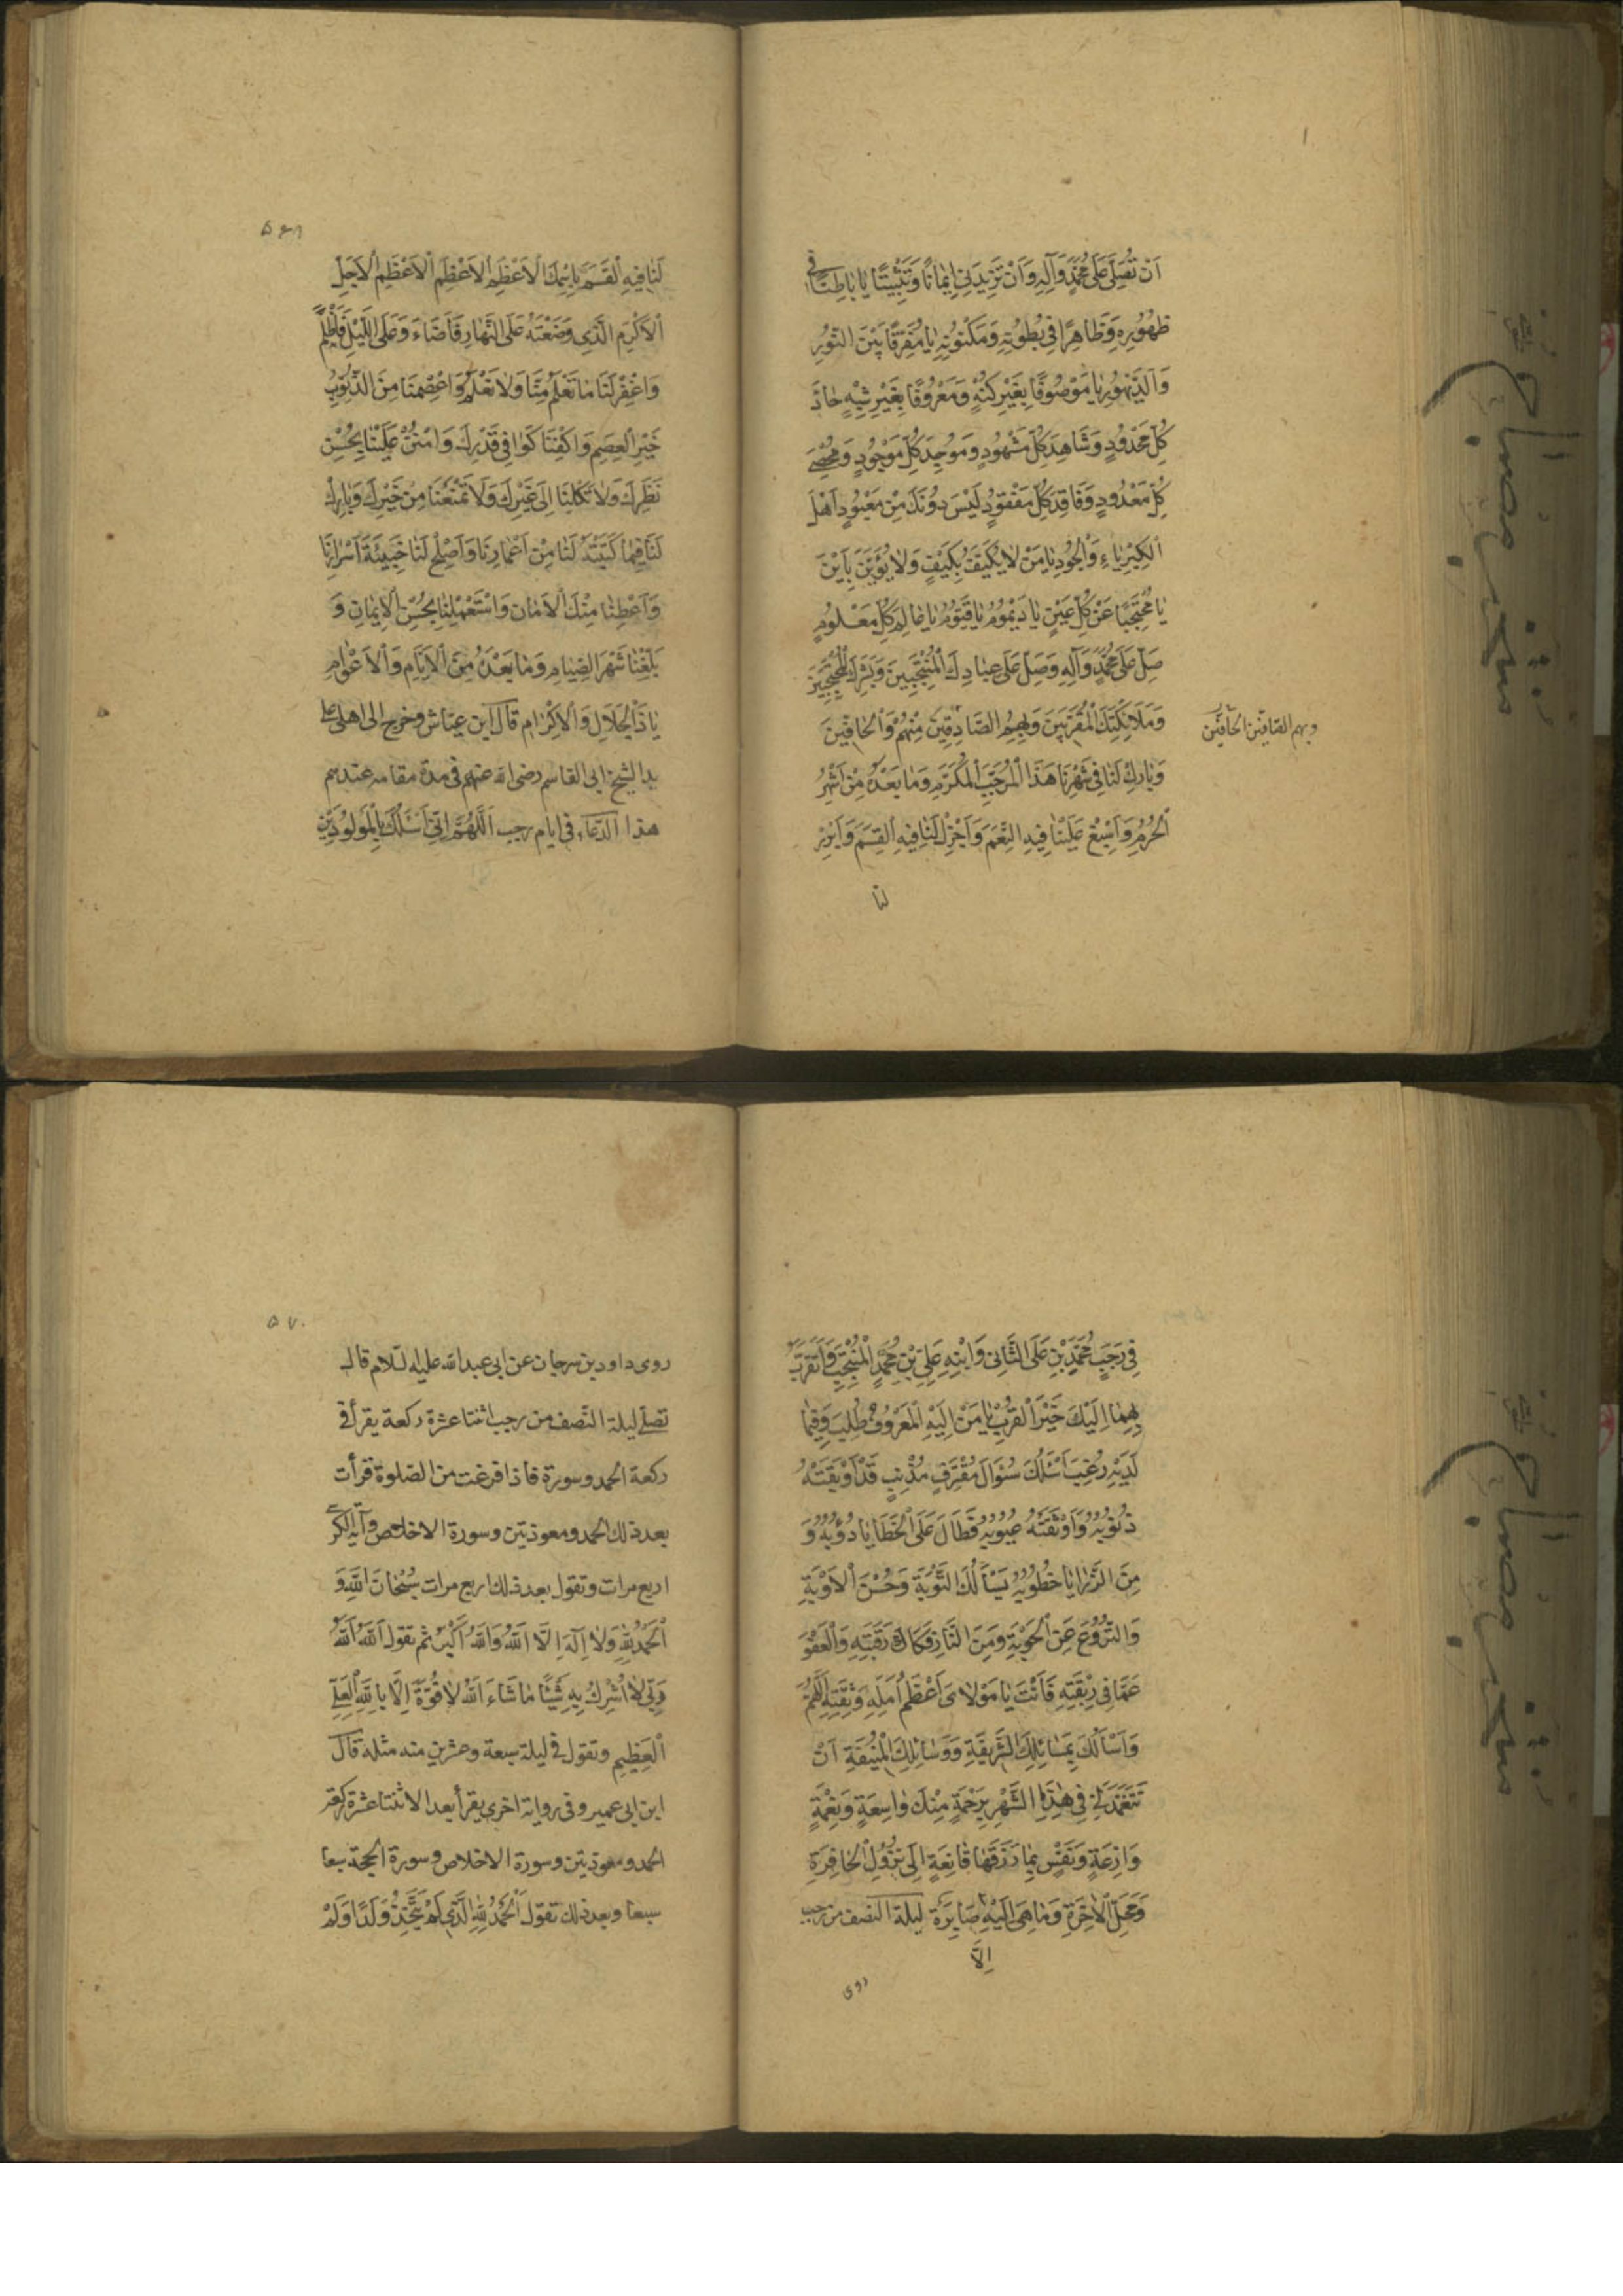 اَنْ تُصَلِّيَ عَلَى مُحَمَّدٍ وَآلِهِ وَاَنْ تَزِيدَنِي اِيمَانًا وَتَثْبِيتًا يَا بَاطِنًا فِي
ظُهُورِهِ وَظَاهِرًا فِي بُطُونِهِ وَمَكْنُونِهِ يَا مُفَرِّقًا بَيْنَ النُّورِ
وَالدَّيْجُورِ يَا مَوْصُوفًا بِغَيْرِ كُنْهٍ وَمَعْرُوفًا بِغَيْرِ شِبْهٍ حَادَّ
كُلِّ مَحْدُودٍ وَشَاهِدَ كُلِّ مَشْهُودٍ وَمُوجِدَ كُلِّ مَوْجُودٍ وَمُحْصِيَ
كُلِّ مَعْدُودٍ وَفَاقِدَ كُلِّ مَفْقُودٍ لَيْسَ دُونَكَ مِنْ مَعْبُودٍ اَهْلَ
الْكِبْرِيَاءِ وَالْجُودِ يَا مَنْ لَا يُكَيَّفُ بِكَيْفٍ وَلَا يُؤَيَّنُ بِاَيْنٍ
يَا مُحْتَجِبًا عَنْ كُلِّ عَيْنٍ يَا دَيْمُومُ يَا قَيُّومُ يَا عَالِمَ كُلِّ مَعْلُومٍ
صَلِّ عَلَى مُحَمَّدٍ وَآلِهِ وَصَلِّ عَلَى عِبَادِكَ الْمُنْتَجَبِينَ وَبَشَرِكَ الْمُحْتَجِبِينَ
وَمَلَائِكَتِكَ الْمُقَرَّبِينَ وَبُهْمِ الصَّادِقِينَ مِنْهُمْ وَالْحَافِّينَ
وبهم الصافّين الحافّين
وَبَارِكْ لَنَا فِي شَهْرِنَا هَذَا الْمُرَجَّبِ الْمُكَرَّمِ وَمَا بَعْدَهُ مِنْ اَشْهُرِ
الْحُرُمِ وَاَسْبِغْ عَلَيْنَا فِيهِ النِّعَمَ وَاَجْزِلْ لَنَا فِيهِ الْقِسَمَ وَاَبْرِرْ
لنا
۵۶۹
لَنَا فِيهِ الْقَسَمَ بِاسْمِكَ الْاَعْظَمِ الْاَعْظَمِ الْاَعْظَمِ الْاَجَلِّ
الْاَكْرَمِ الَّذِي وَضَعْتَهُ عَلَى النَّهَارِ فَاَضَاءَ وَعَلَى اللَّيْلِ فَاَظْلَمَ
وَاغْفِرْ لَنَا مَا تَعْلَمُ مِنَّا وَلَا نَعْلَمُ وَاعْصِمْنَا مِنَ الذُّنُوبِ
خَيْرَ الْعِصَمِ وَاكْفِنَا كَوَافِيَ قَدْرِكَ وَامْنُنْ عَلَيْنَا بِحُسْنِ
نَظَرِكَ وَلَا تَكِلْنَا اِلَى غَيْرِكَ وَلَا تَمْنَعْنَا مِنْ خَيْرِكَ وَبَارِكْ
لَنَا فِيمَا كَتَبْتَهُ لَنَا مِنْ اَعْمَارِنَا وَاَصْلِحْ لَنَا خَبِيئَةَ اَسْرَارِنَا
وَاَعْطِنَا مِنْكَ الْاَمَانَ وَاسْتَعْمِلْنَا بِحُسْنِ الْاِيمَانِ وَ
بَلِّغْنَا شَهْرَ الصِّيَامِ وَمَا بَعْدَهُ مِنَ الْاَيَّامِ وَالْاَعْوَامِ
يَا ذَا الْجَلَالِ وَالْاِكْرَامِ قال ابن عياش وخرج الى اهلى على
يد الشيخ ابى القاسم رضى الله عنهم فى مدة مقامه عندهم
هذا الدعاء فى ايام رجب اَللَّهُمَّ اِنِّي اَسْئَلُكَ بِالْمَوْلُودَيْنِ
فِي رَجَبٍ مُحَمَّدِ بْنِ عَلِيٍّ الثَّانِي وَابْنِهِ عَلِيِّ بْنِ مُحَمَّدٍ الْمُنْتَجَبِ وَاَتَقَرَّبُ
بِهِمَا اِلَيْكَ خَيْرَ الْقُرَبِ يَا مَنْ اِلَيْهِ الْمَعْرُوفُ طُلِبَ وَفِيمَا
لَدَيْهِ رُغِبَ اَسْئَلُكَ سُؤَالَ مُقْتَرِفٍ مُذْنِبٍ قَدْ اَوْبَقَتْهُ
ذُنُوبُهُ وَاَوْثَقَتْهُ عُيُوبُهُ فَطَالَ عَلَى الْخَطَايَا دُؤُبُهُ وَ
مِنَ الرَّزَايَا خُطُوبُهُ يَسْاَلُكَ التَّوْبَةَ وَحُسْنَ الْاَوْبَةِ
وَالنُّزُوعَ عَنِ الْحَوْبَةِ وَمِنَ النَّارِ فَكَاكَ رَقَبَتِهِ وَالْعَفْوَ
عَمَّا فِي رِبْقَتِهِ فَاَنْتَ يَا مَوْلَايَ اَعْظَمُ اَمَلِهِ وَثِقَتِهِ اَللَّهُمَّ
وَاَسْاَلُكَ بِمَسَائِلِكَ الشَّرِيفَةِ وَوَسَائِلِكَ الْمُنِيفَةِ اَنْ
تَتَغَمَّدَنِي فِي هَذَا الشَّهْرِ بِرَحْمَةٍ مِنْكَ وَاسِعَةٍ وَنِعْمَةٍ
وَازِعَةٍ وَنَفْسٍ بِمَا رَزَقْتَهَا قَانِعَةٍ اِلَى نُزُولِ الْحَافِرَةِ
وَمَحَلِّ الْاَخِرَةِ وَمَا هِيَ اِلَيْهِ صَايِرَةٌ ليلة النصف من رجب
اِلَّا
روى
۵۷۰
روى داود بن سرحان عن ابى عبدالله عليه السلام قال
تصلى ليلة النصف من رجب اثنتا عشرة ركعة يقرأ فى
ركعة الحمد وسورة فاذا فرغت من الصلوة قرأت
بعد ذلك الحمد ومعوذتين وسورة الاخلاص وآية الكرسى
اربع مرات وتقول بعد ذلك اربع مرات سُبْحَانَ اللَّهِ وَ
الْحَمْدُ لِلَّهِ وَلَا اِلَهَ اِلَّا اللَّهُ وَاللَّهُ اَكْبَرُ ثم تقول اَللَّهُ اَللَّهُ
رَبِّي لَا اُشْرِكُ بِهِ شَيْئًا مَا شَاءَ اللَّهُ لَا قُوَّةَ اِلَّا بِاللَّهِ الْعَلِيِّ
الْعَظِيمِ وتقول فى ليلة سبعة وعشرين منه مثله قال
ابن ابى عمير وفى رواية اخرى يقرأ بعد الاثنتا عشرة ركعة
الحمد ومعوذتين وسورة الاخلاص وسورة الجحد سبعا
سبعا وبعد ذلك تقول اَلْحَمْدُ لِلَّهِ الَّذِي لَمْ يَتَّخِذْ وَلَدًا وَلَمْ